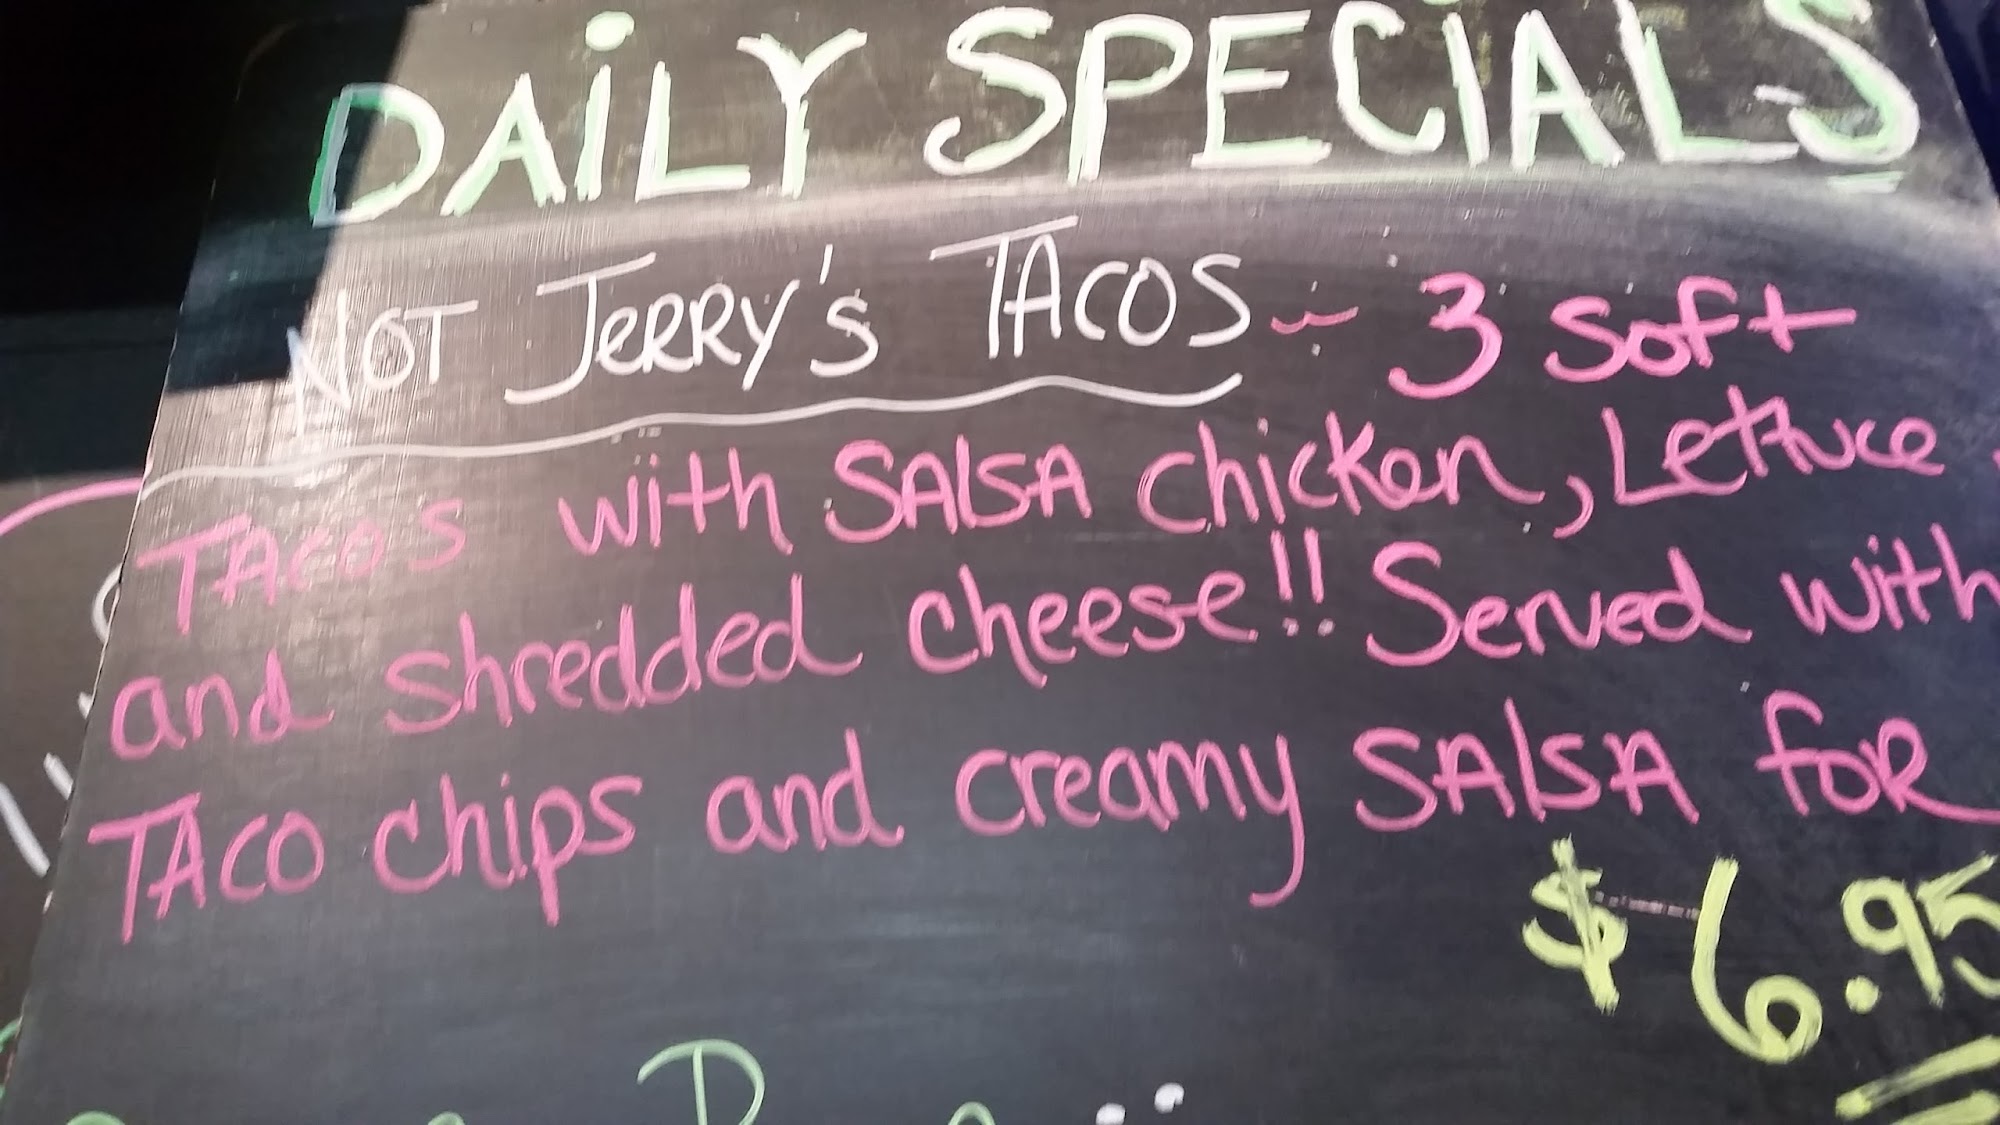 DAiLY SPECiALS
NOT JERRY'S TACOS - 3 Soft
TACOS with SALSA chicken, Lettuce
and shredded cheese!! Served with
TACO chips and creamy SALSA foR
$6.95